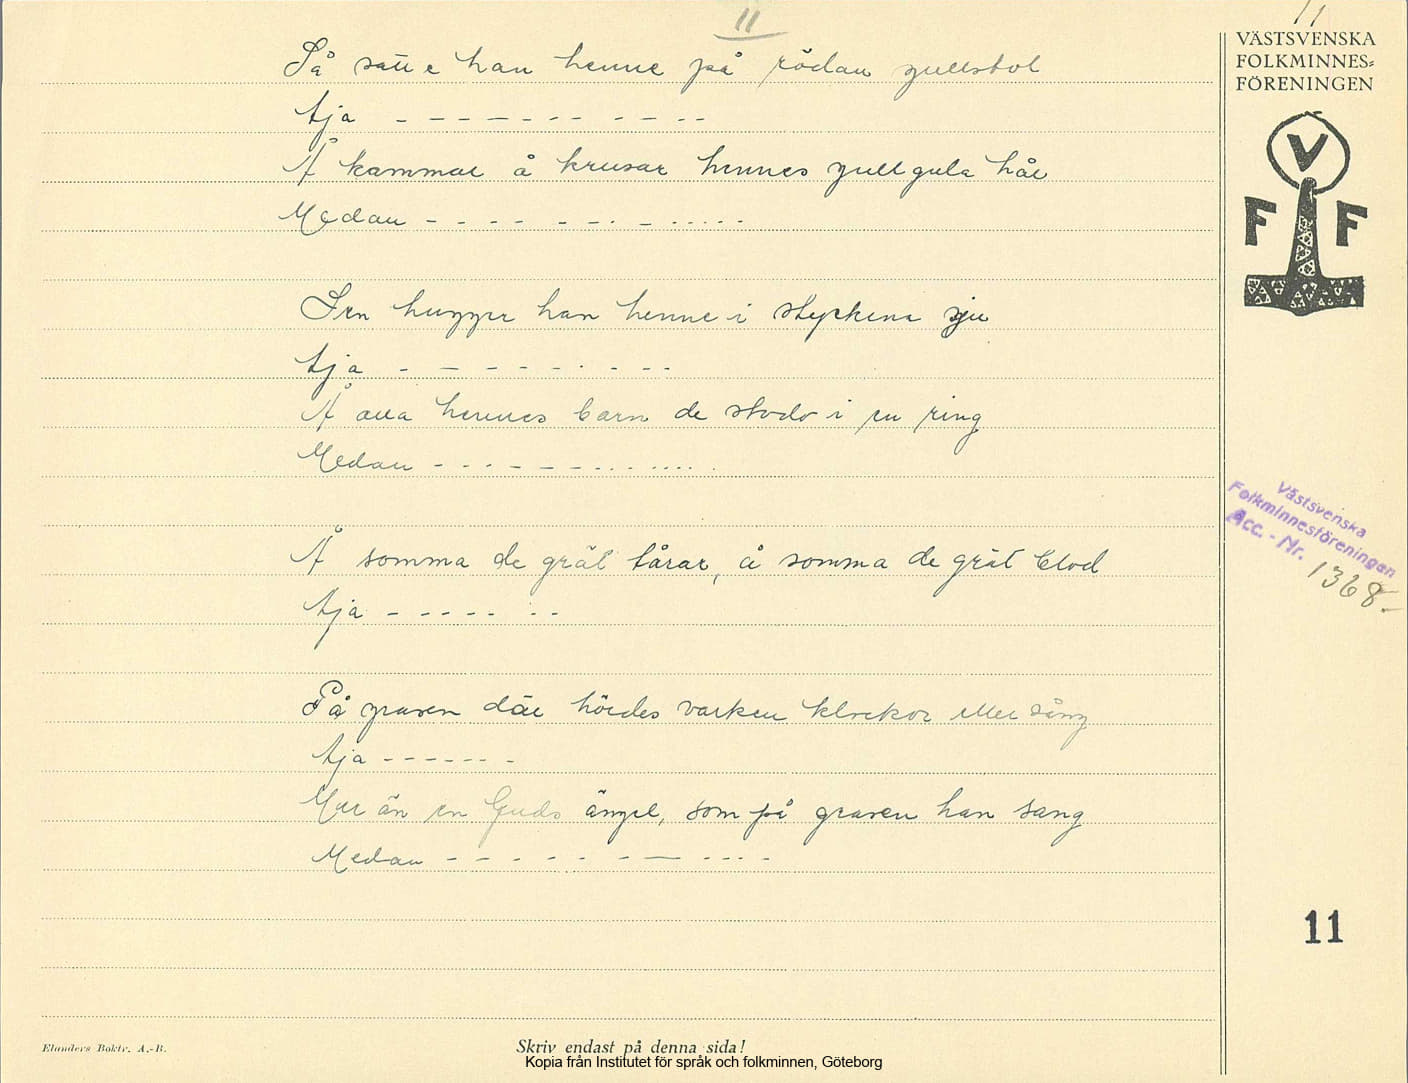 11
11
VÄSTSVENSKA
FOLKMINNES=
FÖRENINGEN
V
F F
Så satte han henne på rödan gullstol
Aja - - - - - - - - - - - -
Å kammar å krusar hennes gullgula hår
Medan - - - - - - - - - - - - - -
Sen hugger han henne i styckena sju
Aja - - - - - - - - -
Å alla hennes barn de stodo i en ring
Medan - - - - - - - - - - - - - -
Västsvenska
Folkminnesföreningen
Acc. - Nr. 1368.-
Å somma de grät tårar, å somma de grät blod
Aja - - - - - - -
På graven där hördes varken klockor eller sång
Aja - - - - - - -
Mer än en Guds ängel, som på graven han sang
Medan - - - - - - - - - - - -
11
Elanders Boktr. A.-B.
Skriv endast på denna sida!
Kopia från Institutet för språk och folkminnen, Göteborg